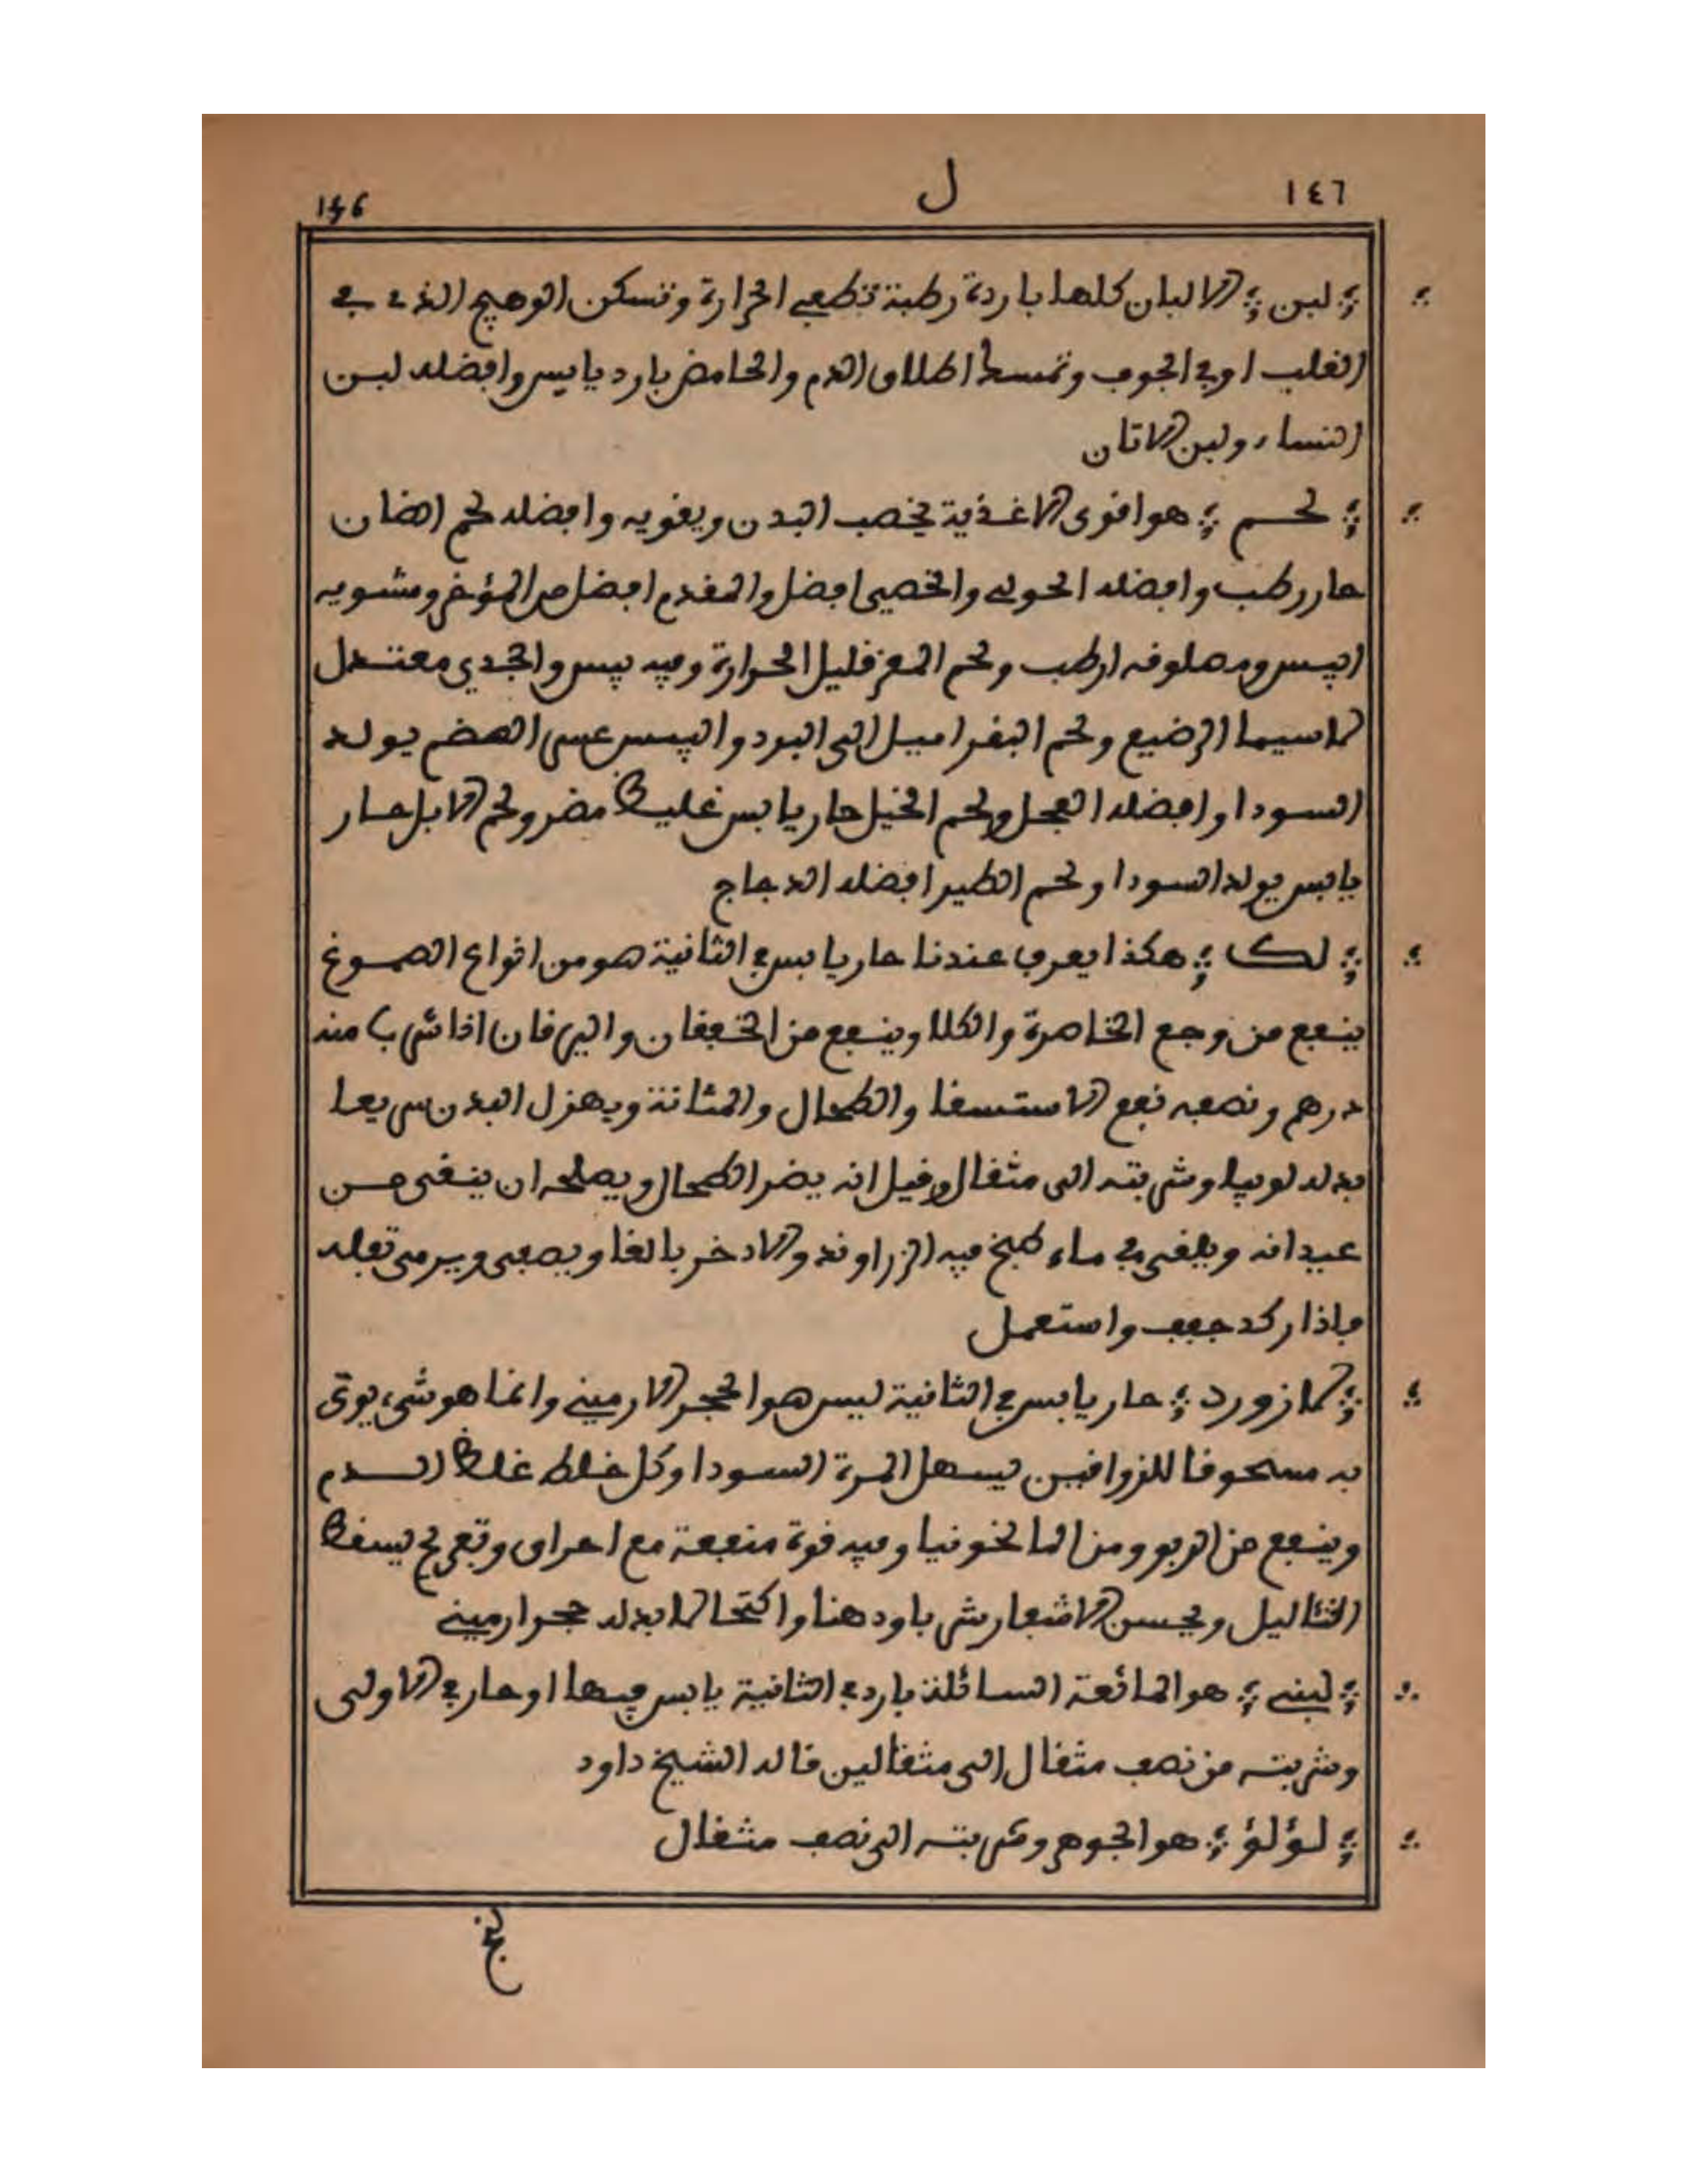 ١٤٦ ل 146
لبن الالبان كلها باردة رطبة تطفي الحرارة وتسكن الوهيج الذي في
القلب او في الجوف وتمسك اطلاق الدم والحامض بارد يابس وافضله لبن
النساء ولبن الاتان
لحم هو اقوى الاغذية يخصب البدن ويقويه وافضله لحم الضان
حار رطب وافضله الحولي والخصي افضل والمقدم افضل من المؤخر ومشويه
ايبس ومصلوقه ارطب ولحم المعز قليل الحرارة وفيه يبس والجدي معتدل
لاسيما الرضيع ولحم البقر اميل الى البرد واليبس عسى الهضم يولد
السودا وافضله العجل ولحم الخيل حار يابس غليظ مضر ولحم الابل حار
يابس يولد السودا ولحم الطير افضله الدجاج
لك هكذا يعرف عندنا حار يابس في الثانية هو من انواع الصموغ
ينفع من وجع الخاصرة والكلا وينفع من الخفقان واليرقان اذا شرب منه
درهم ونصفه نفع الاستسقا والطحال والمثانة ويهزل البدن سريعا
بدله لوبيا وشربته الى مثقال وقيل انه يضر الطحال ويصلحه ان ينقى من
عيدانه ويلقى في ماء طبخ فيه الزراوند والادخر بالغا ويصفى ويرمى تفله
فاذا ركد جفف واستعمل
لازورد حار يابس في الثانية ليس هو الحجر الارميني وانما هو شيء يوتى
به مسحوقا للزواقين يسهل المرة السودا وكل خلط غلظ الدم
وينفع من الربو ومن المالخونيا وفيه قوة منفعة مع احراق وتقريح يسقط
الثاليل ويحسن الاشفار شربا ودهنا واكتحالا بدله حجر ارميني
لبنى هو المائعة السائلة بارد في الثانية يابس فيها او حار في الاولى
وشربته من نصف مثقال الى مثقالين قاله الشيخ داود
لؤلؤ هو الجوهر وشربته الى نصف مثقال